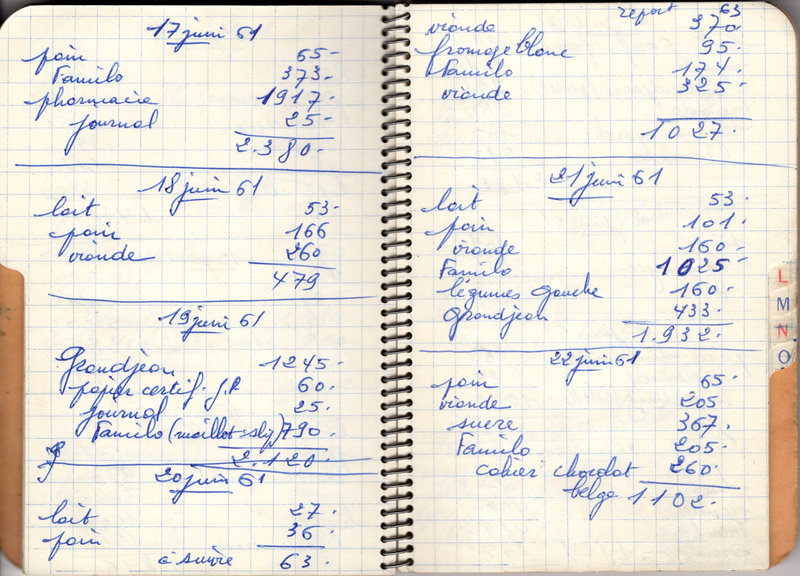 17 juin 61
pain 65-
Familo 373-
pharmacie 1917-
journal 25-
2.380-
18 juin 61
lait 53-
pain 166
viande 260
479
19 juin 61
Grandjean 1245.
papier certif. 60.
journal 25.
Familo (maillot-slip) 790.
2.120.
20 juin 61
lait 27.
pain 36.
à suivre 63.
report 63
viande 370
fromage blanc 95.
Familo 174.
viande 325-
1027.
21 juin 61
lait 53.
pain 101.
viande 160-
Familo 1025-
légumes gauche 160.
Grandjean 433.
1.932.
22 juin 61
pain 65.
viande 205
sucre 367.
Familo 205.
cahier chocolat 260.
belge 1102.
L
M
N
O